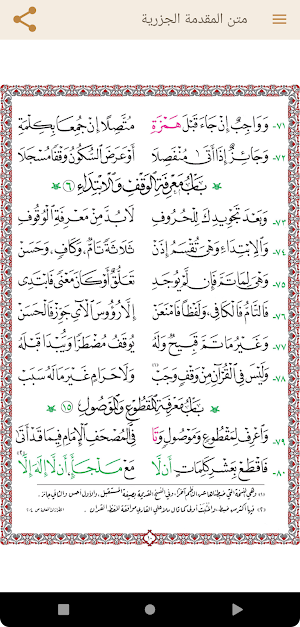 متن المقدمة الجزرية
٧١- وَوَاجِبٌ إِنْ جَاءَ قَبْلَ هَمْزَةِ مُتَّصِلًا إِنْ جُمِعَا بِكِلْمَةِ
٧٢- وَجَائِزٌ إِذَا أَتَى مُنْفَصِلَا أَوْ عَرَضَ السُّكُونُ وَقْفًا مُسْجَلَا
بَابُ مَعْرِفَةِ الْوَقْفِ وَالِابْتِدَاءِ ٦
٧٣- وَبَعْدَ تَجْوِيدِكَ لِلْحُرُوفِ لَابُدَّ مِنْ مَعْرِفَةِ الْوُقُوفِ
٧٤- وَالِابْتِدَاءِ وَهْيَ تُقْسَمُ إِذَنْ ثَلَاثَةً تَامٌ وَكَافٍ وَحَسَنْ
٧٥- وَهْيَ لِمَا تَمَّ فَإِنْ لَمْ يُوجَدِ تَعَلُّقٌ أَوْ كَانَ مَعْنًى فَابْتَدِى
٧٦- فَالتَّامُ فَالْكَافِي وَلَفْظًا فَامْنَعَنْ إِلَّا رُؤُوسَ الْآيِ جَوِّزْ فَالْحَسَنْ
٧٧- وَغَيْرُ مَا تَمَّ قَبِيحٌ وَلَهُ يُوقَفُ مُضْطَرًّا وَيُبْدَا قَبْلَهُ
٧٨- وَلَيْسَ فِي الْقُرْآنِ مِنْ وَقْفٍ وَجَبْ وَلَا حَرَامٌ غَيْرَ مَا لَهُ سَبَبْ
بَابُ مَعْرِفَةِ الْمَقْطُوعِ وَالْمَوْصُولِ ١٥
٧٩- وَاعْرِفْ لِمَقْطُوعٍ وَمَوْصُولٍ وَتَا فِي الْمُصْحَفِ الْإِمَامِ فِيمَا قَدْ أَتَى
٨٠- فَاقْطَعْ بِعَشْرِ كَلِمَاتٍ أَنْ لَا مَعْ مَلْجَأٍ أَنْ لَا إِلَهَ إِلَّا